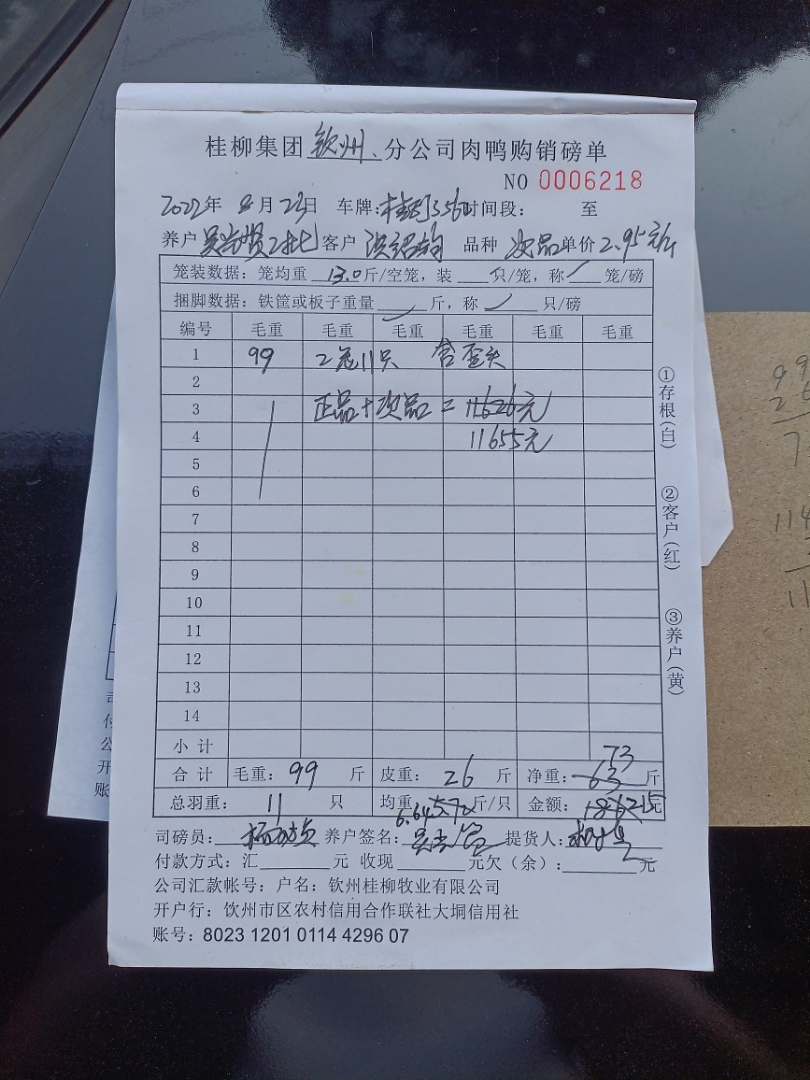 桂柳集团钦州、分公司肉鸭购销磅单
NO 0006218
2022年 8月23日 车牌:桂 3556时间段: 至
养户 2批 客户 洪绍钧 品种 次品 单价 2.95元/斤
笼装数据: 笼均重 13.0 斤/空笼, 装 只/笼, 称 笼/磅
捆脚数据: 铁筐或板子重量 斤, 称 只/磅
编号 毛重 毛重 毛重 毛重 毛重 毛重
1 99 2笼11只 含歪头
2
3 正品+次品=11626元
4 11655元
5
6
7
8
9
10
11
12
13
14
小 计
合 计 毛重: 99 斤 皮重: 26 斤 净重: 63 73 斤
总羽重: 11 只 均重: 5.72 6.64 斤/只 金额:
司磅员: 养户签名: 提货人:
付款方式: 汇 元 收现 元欠(余): 元
公司汇款帐号: 户名: 钦州桂柳牧业有限公司
开户行: 钦州市区农村信用合作联社大垌信用社
账号: 8023 1201 0114 4296 07
①存根(白) ②客户(红) ③养户(黄)